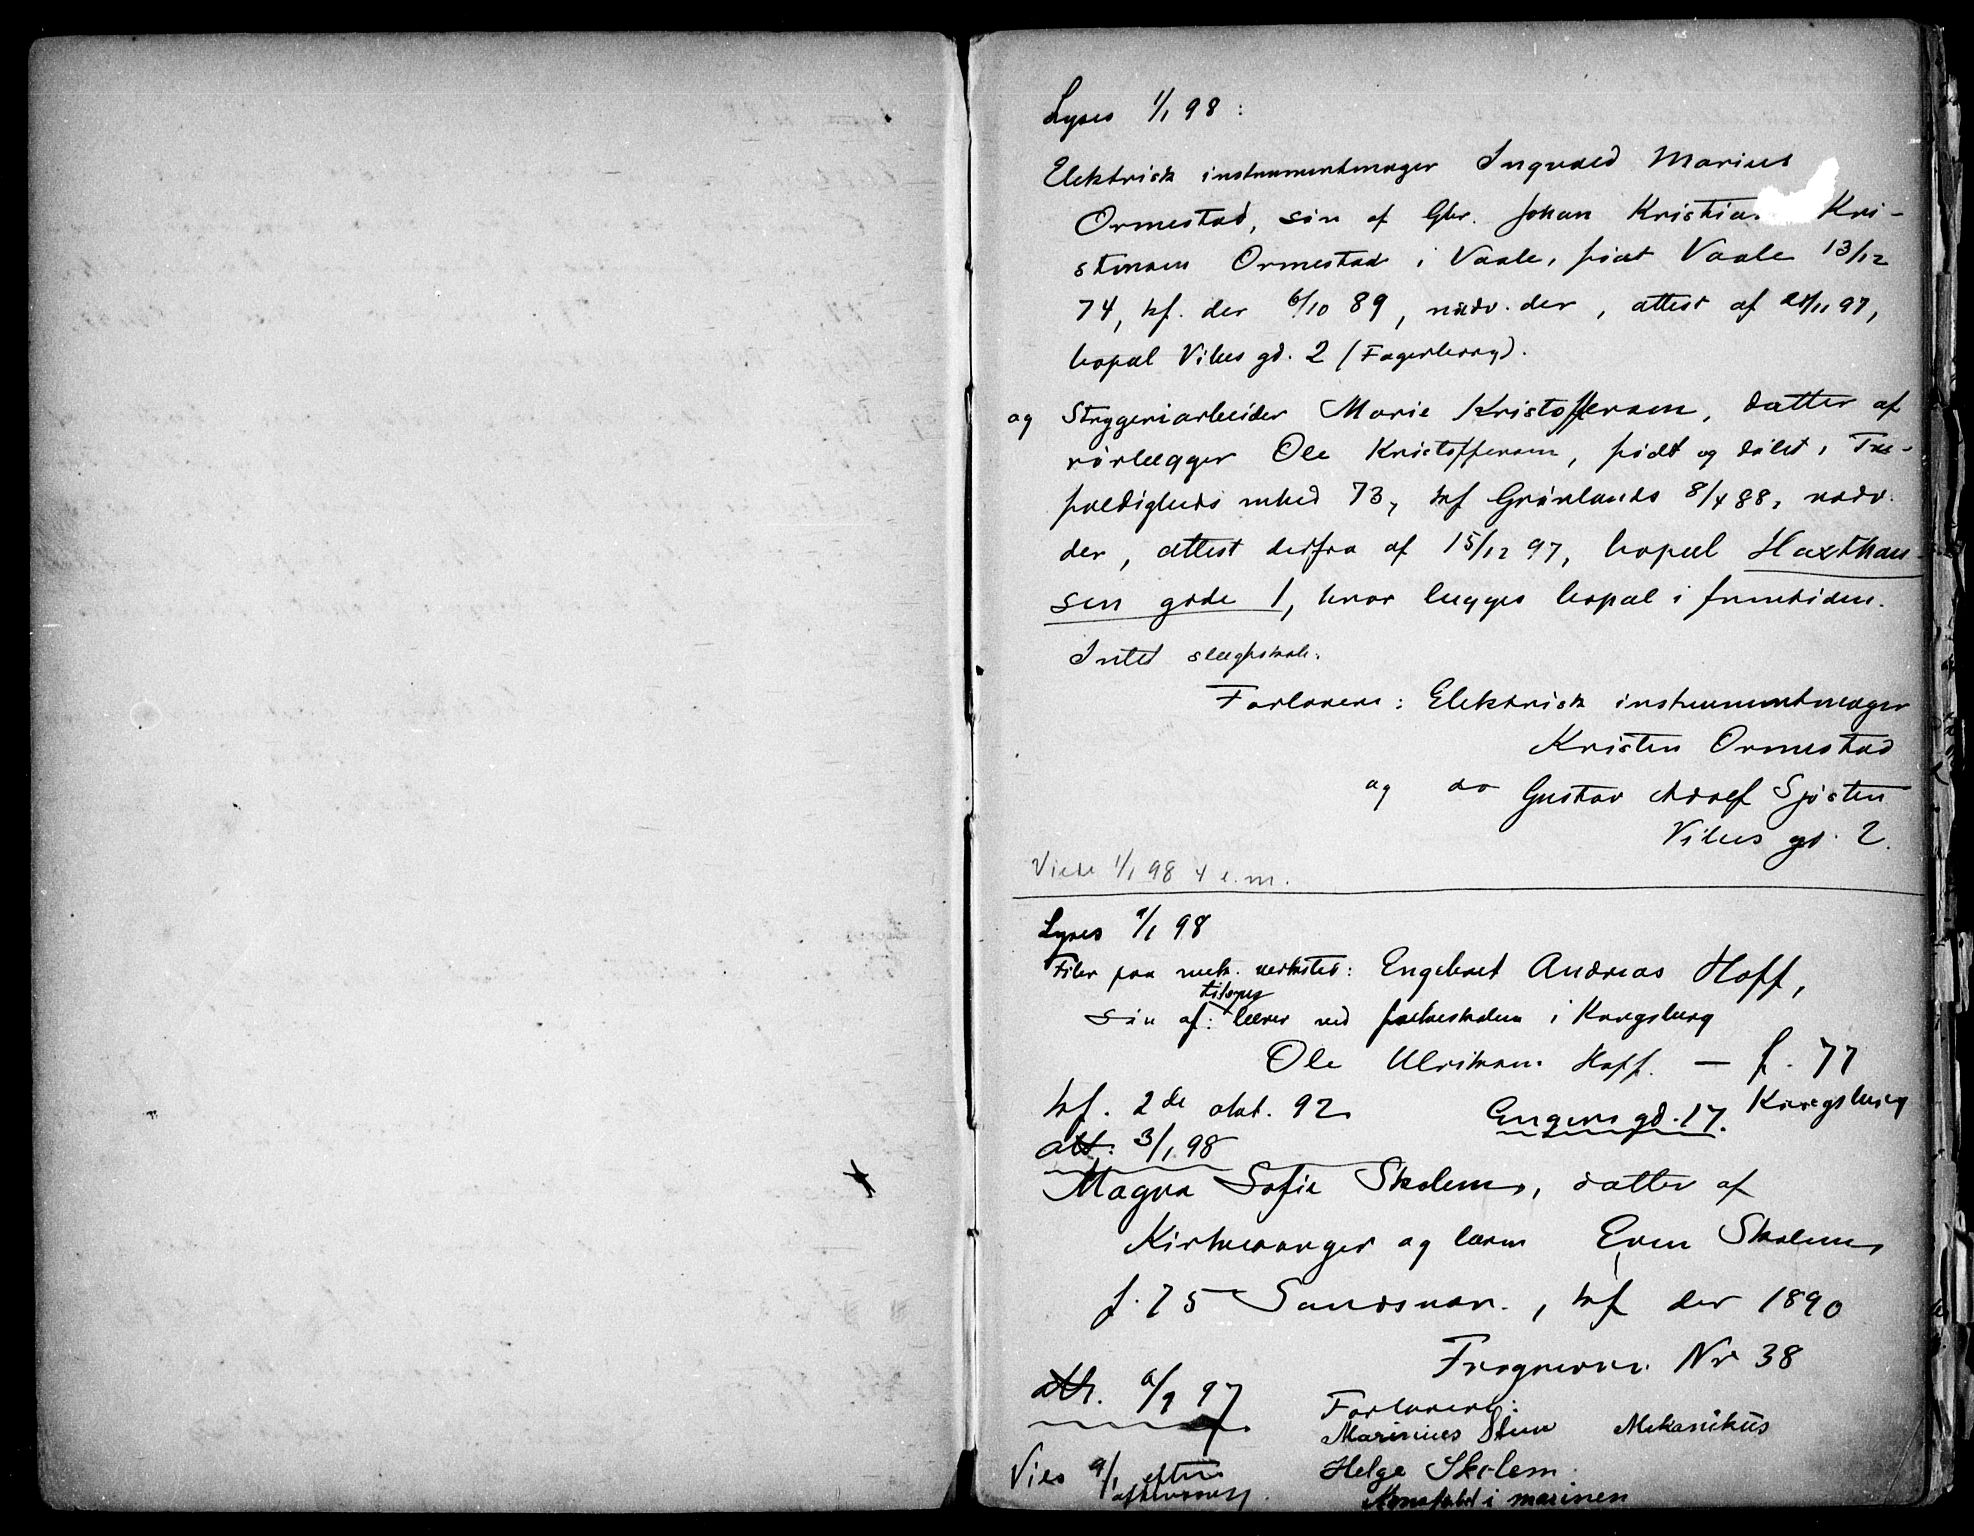 Lyses 1/1 98 :
Elektrisk instrumentmager Ingvald Marius
Ormestad, søn af Gbr. Johan Kristian Kri-
stensen Ormestad i Vaale, født Vaale 13/12
74, kf. der 6/10 89, nadv. der, attest af 28/11 97,
bopæl Vibes gd. 2 (Fagerborg).
og Strygeriarbeider Marie Kristoffersen, datter af
rørlægger Ole Kristoffersen, født og døbt i Tre-
foldigheds mhed 73, kf Grønlands 8/4 88, nadv.
der, attest derfra af 15/12 97, bopæl Haxthau-
sen gade 1, hvor lægges bopæl i fremtiden.
Intet slægtskab.
Forlovere : Elektrisk instrumentmager
Kristen Ormestad
og do Gustav Adolf Sjøsten
Vibes gd. 2.
Viede 1/1 98 4 e.m.
Lyses 9/1 98
Filer paa mek. verksted: Engebret Andreas Hoff,
tidligere
søn af: lærer ved folkeskolen i Kongsberg
Ole Ulriksen Hoff. — f. 77
kf. 2de okt. 92 Engens gd. 17. Kongsberg
att. 3/1 98
Magna Sofie Skolem, datter af
Kirkesanger og lærer Even Skolem
f. 75 Sandsvær., kf der 1890
Frognerv. Nr 38
att. 97
Forlovere:
Marinius Steen Mekanikus
Helge Skolem.
i marinen
Vies 9/1 efter
aftensang.